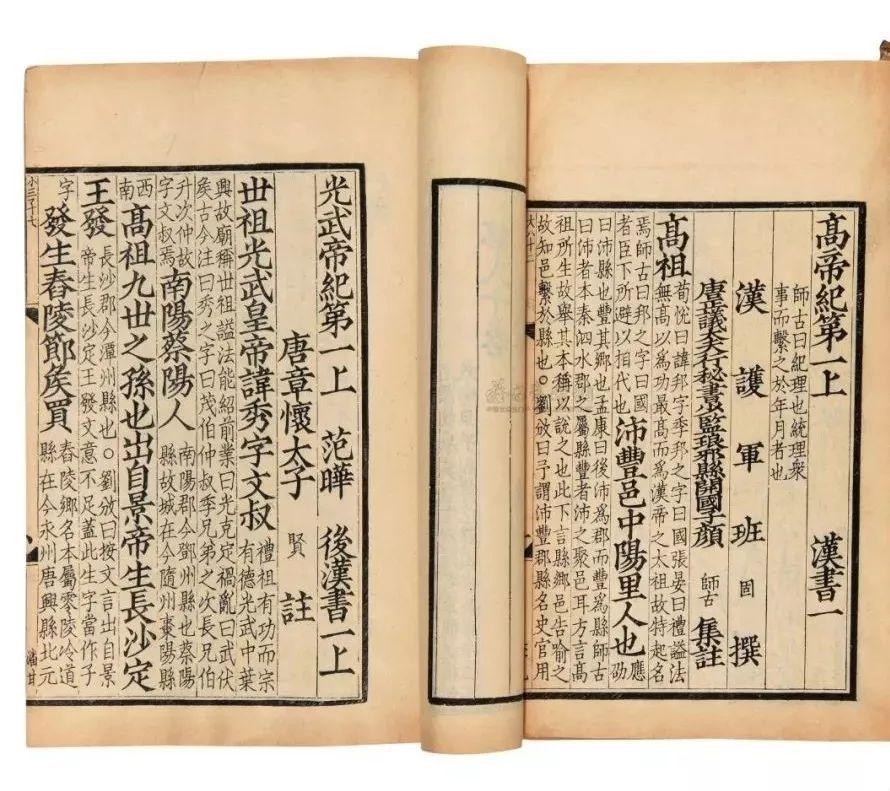 髙帝紀第一上 漢書一
師古曰紀理也統理衆
事而繫之於年月者也
漢護軍班固撰
唐正議大夫行秘書少監琅邪縣開國子顔師古集註
髙祖
荀悅曰諱邦字季邦之字曰國張晏曰禮謚法
無髙以爲功最髙而爲漢帝之太祖故特起名
焉師古曰邦之字曰國
者臣下所避以相代也
沛豐邑中陽里人也
應
劭
曰沛縣也豐其郷也孟康曰後沛爲郡而豐爲縣師古
曰沛者本秦泗水郡之屬縣豐者沛之聚邑耳方言髙
祖所生故舉其本稱以說之也此下言縣郷邑告喻之
故知邑繫於縣也。劉攽曰予謂沛豐郡縣名史官用
大八十二
光武帝紀第一上 范曄 後漢書一上
唐章懷太子賢註
丗祖光武皇帝諱秀字文叔
禮祖有功而宗
有德光武中葉
興故廟稱丗祖謚法能紹前業曰光克定禍亂曰武伏
矦古今注曰秀之字曰茂伯仲叔季兄弟之次長兄伯
升次仲故
字文叔焉
南陽蔡陽人
南陽郡今鄧州縣也蔡陽
縣故城在今隨州棗陽縣
西
南
髙祖九丗之孫也出自景帝生長沙定
王發
長沙郡今潭州縣也。劉攽曰按文言出自景
帝生長沙定王發文意不足蓋此生字當作子
字
發生舂陵節矦買
舂陵鄉名本屬零陵泠道
縣在今永州唐興縣北元
小三千七